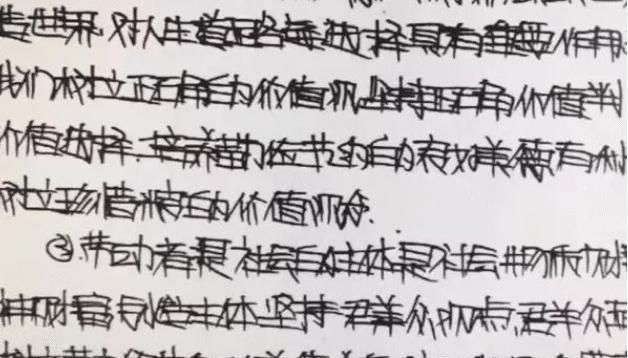 造世界,对人生道路的选择具有重要作用
我们树立正确的价值观,坚持正确价值判
价值选择.培养勤俭节约的良好美德有利
树立珍惜粮食的价值观念.
②劳动者是社会的主体是社会物质财
神财富创造主体坚持群众观点,群众